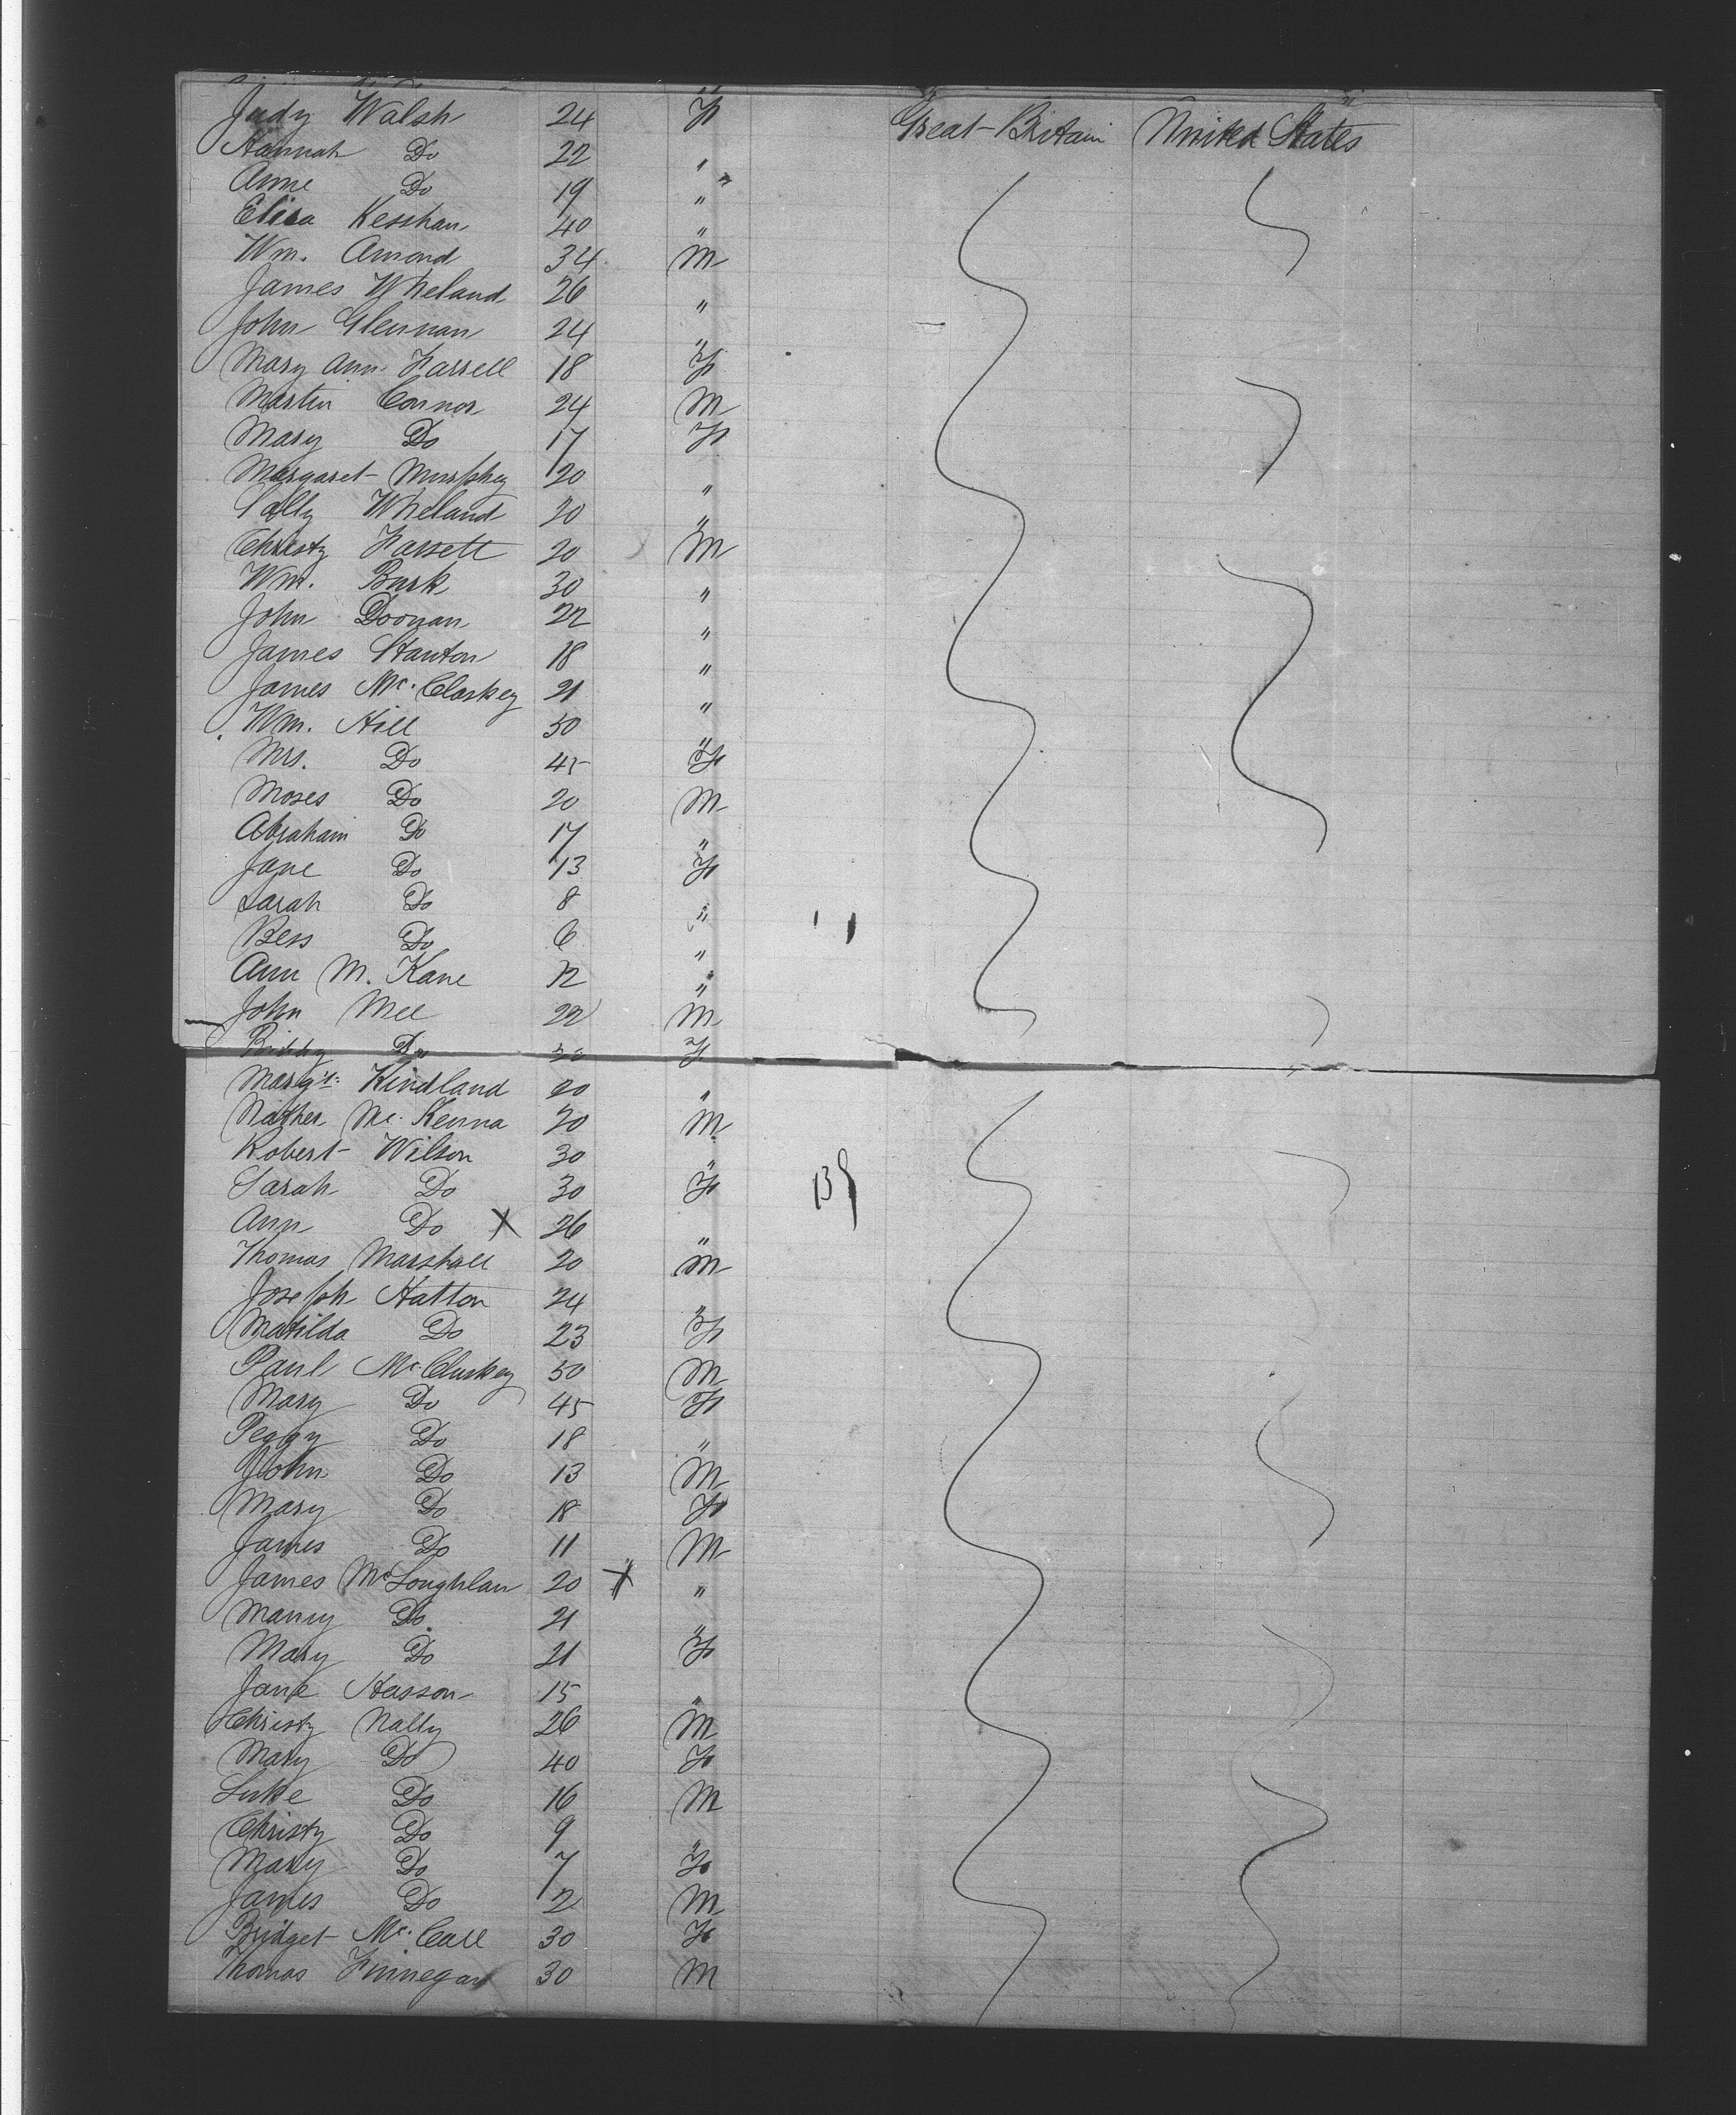 Judy Walsh 24 F Great-Britain United States
Hannah Do 22 "
Anne Do 19 "
Eliza Kesshan 40 "
Wm. Amond 34 M
James Wheland 26 "
John Glennan 24 "
Mary Ann Farrell 18 F
Martin Connor 24 M
Mary Do 17 F
Margaret Murphey 20 "
Sally Wheland 20 "
Christy Farrell 20 M
Wm. Burk 30 "
John Doonan 22 "
James Stanton 18 "
James Mc. Closkey 21 "
Wm. Hill 50 "
Mrs. Do 45 F
Moses Do 20 M
Abraham Do 17 "
Jane Do 13 F
Sarah Do 8 "
Bess Do 6 "
Ann M. Kane 12 "
John Mee 22 M
Biddy Do F
Margt. Kindland 20 "
Mc. Kenna 20 M
Robert Wilson 30 "
Sarah Do 30 F
Ann Do X 26 "
Thomas Marshall 20 M
Joseph Hatton 24 "
Matilda Do 23 F
Paul Mc. Cluskey 50 M
Mary Do 45 F
Peggy Do 18 "
John Do 13 M
Mary Do 18 F
James Do 11 M
James McLoughlan 20 X "
Do. 21 "
Mary Do 21 F
Jane Hasson 15 "
Christy Nally 26 M
Mary Do 40 F
Luke Do 16 M
Christy Do 9 "
Mary Do 7 F
James Do 2 M
Bridget Mc. Call 30 F
Thomas Finnegan 30 M